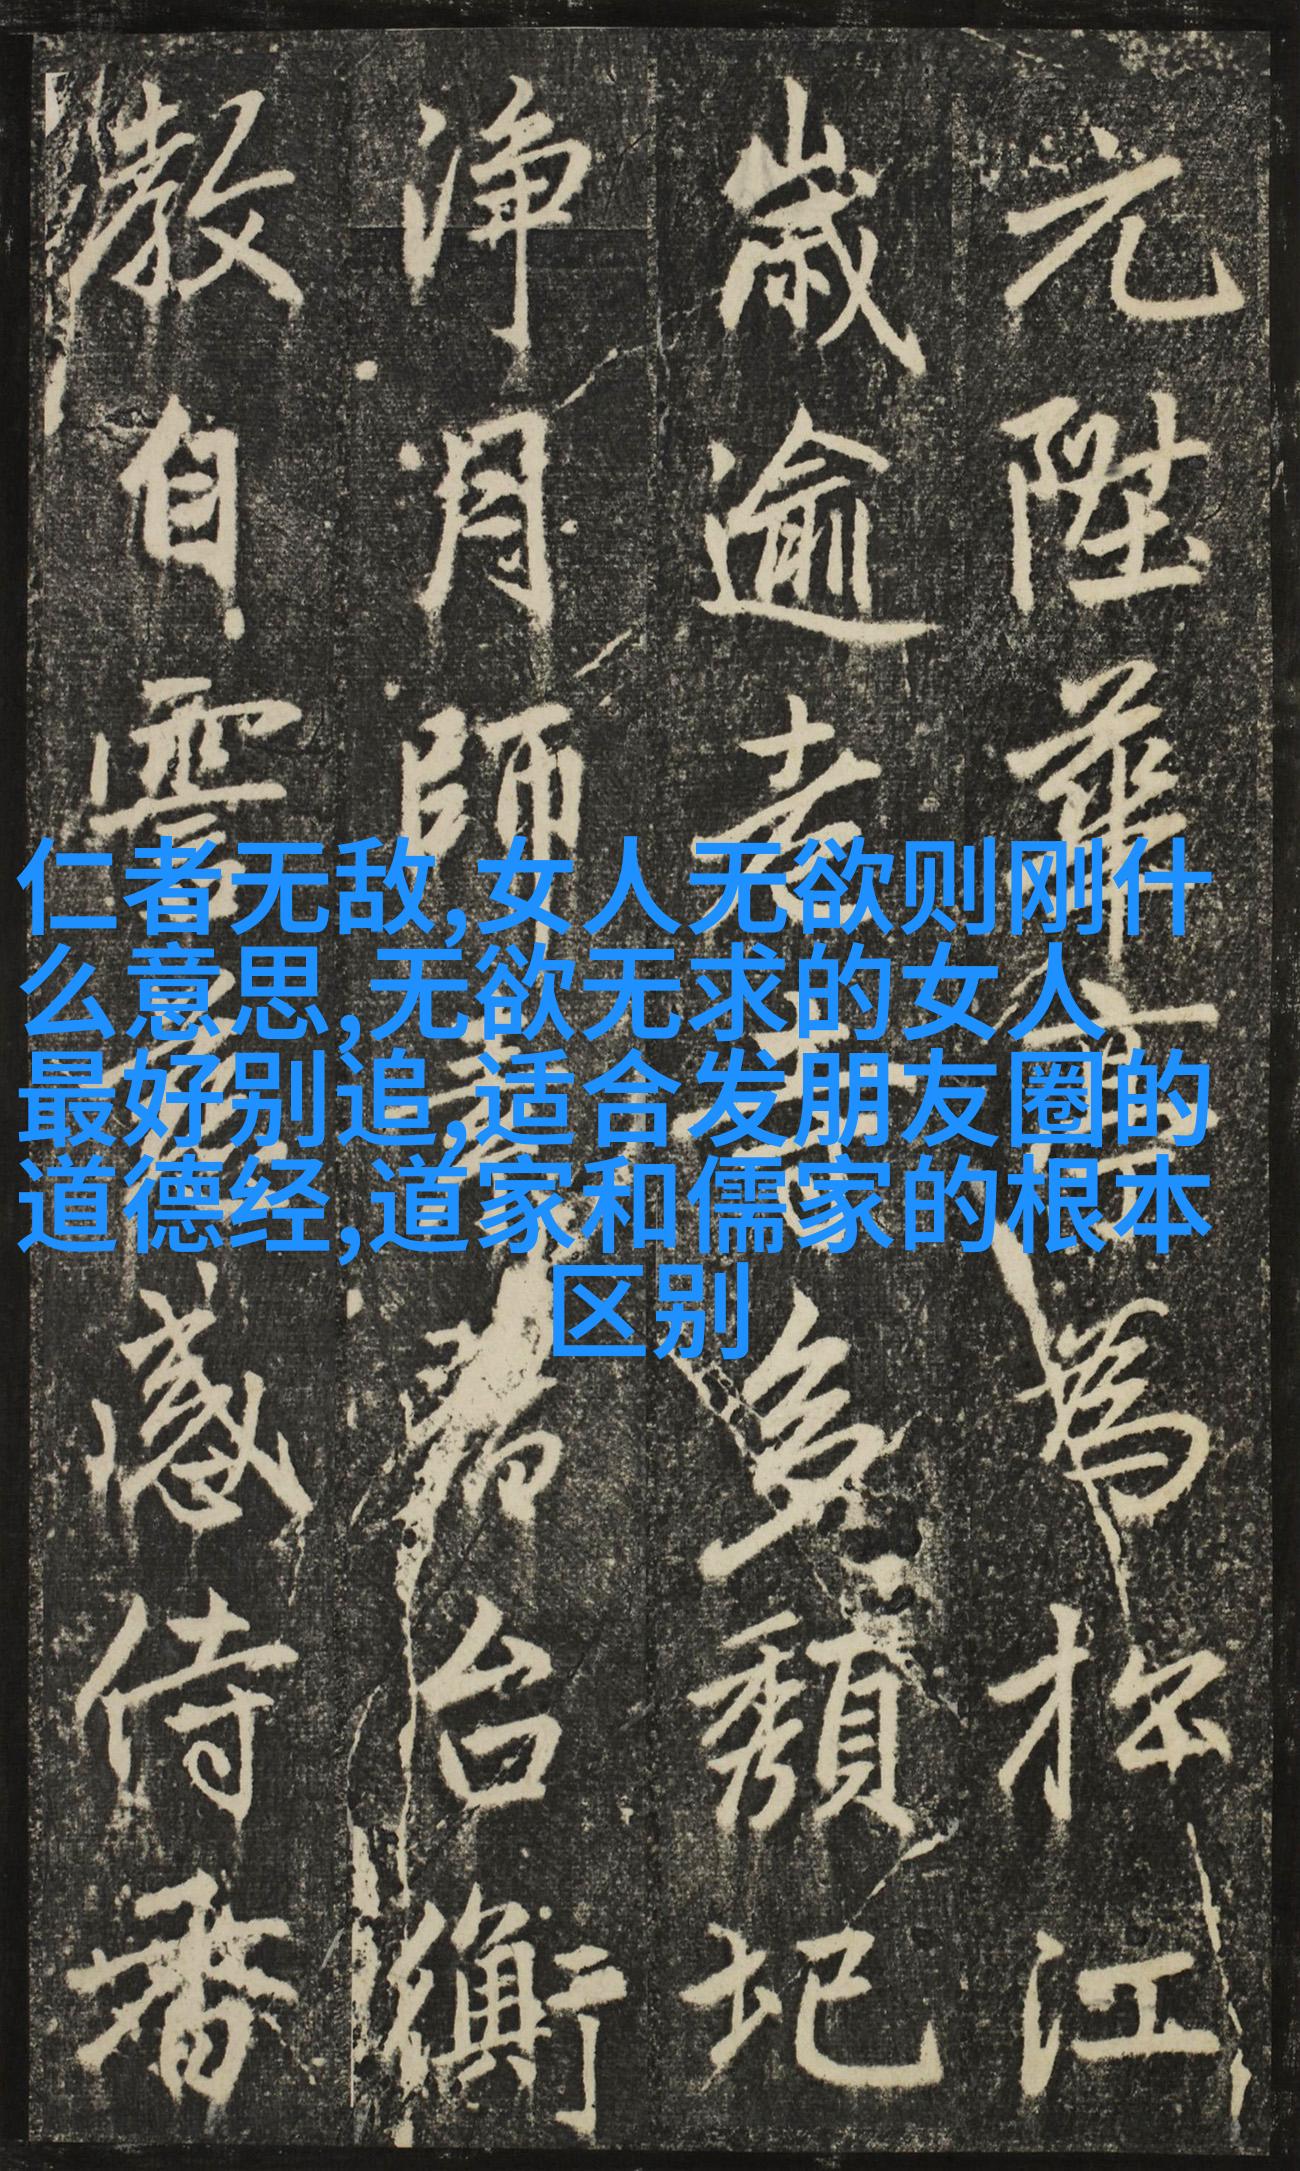 元陞華宗為于江
歲逾老多頽圮
淨月師台衡
教自雲感侍香
仁者无敌,女人无欲则刚什
么意思,无欲无求的女人
最好别追,适合发朋友圈的
道德经,道家和儒家的根本
区别